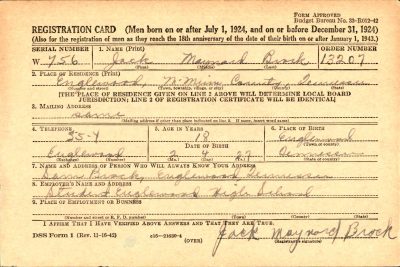 FORM APPROVED
Budget Bureau No. 33-R012-42
REGISTRATION CARD (Men born on or after July 1, 1924, and on or before December 31, 1924)
(Also for the registration of men as they reach the 18th anniversary of the date of their birth on or after January 1, 1943.)
SERIAL NUMBER 1. NAME (Print) ORDER NUMBER
W 756 Jack Maynard Brock 13207
(First) (Middle) (Last)
2. PLACE OF RESIDENCE (Print)
Englewood, McMinn County, Tennessee
(Number and street) (Town, township, village, or city) (County) (State)
[THE PLACE OF RESIDENCE GIVEN ON LINE 2 ABOVE WILL DETERMINE LOCAL BOARD
JURISDICTION; LINE 2 OF REGISTRATION CERTIFICATE WILL BE IDENTICAL]
3. MAILING ADDRESS
same
[Mailing address if other than place indicated on line 2. If same, insert word same]
4. TELEPHONE 5. AGE IN YEARS 6. PLACE OF BIRTH
55-Y 18 Englewood
DATE OF BIRTH (Town or county)
Englewood 2 4 27 Tennessee
(Exchange) (Number) (Mo.) (Day) (Yr.) (State or country)
7. NAME AND ADDRESS OF PERSON WHO WILL ALWAYS KNOW YOUR ADDRESS
Sam Brock, Englewood Tennessee
8. EMPLOYER'S NAME AND ADDRESS
Student Englewood High School
9. PLACE OF EMPLOYMENT OR BUSINESS
(Number and street or R. F. D. number) (Town) (County) (State)
I AFFIRM THAT I HAVE VERIFIED ABOVE ANSWERS AND THAT THEY ARE TRUE.
DSS Form 1 (Rev. 11-16-42) (OVER) Jack Maynard Brock
(Registrant's signature)